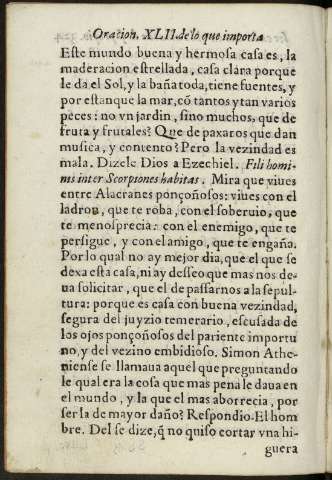 Oracion. XLII. de lo que importa
Este mundo buena y hermosa casa es, la
maderacion estrellada, casa clara porque
le da el Sol, y la baña toda, tiene fuentes, y
por estanque la mar, cõ tantos y tan varios
peces: no vn jardin, sino muchos, que de
fruta y frutales? Que de paxaros que dan
musica, y contento? Pero la vezindad es
mala. Dizele Dios a Ezechiel. Fili homi-
nis inter Scorpiones habitas. Mira que viues
entre Alacranes ponçoñosos: viues con el
ladron, que te roba, con el soberuio, que
te menosprecia: con el enemigo, que te
persigue, y con el amigo, que te engaña.
Por lo qual no ay mejor dia, que el que se
dexa esta casa, ni ay desseo que mas nos de-
ua solicitar, que el de passarnos a la sepul-
tura: porque es casa con buena vezindad,
segura del juyzio temerario, escusada de
los ojos ponçoñosos del pariente importu
no, y del vezino embidioso. Simon Athe-
niense se llamaua aquel que preguntando
le qual era la cosa que mas pena le daua en
el mundo, y la que el mas aborrecia, por
ser la de mayor daño? Respondio. El hom
bre. Del se dize, q̃ no quiso cortar vna hi-
guera